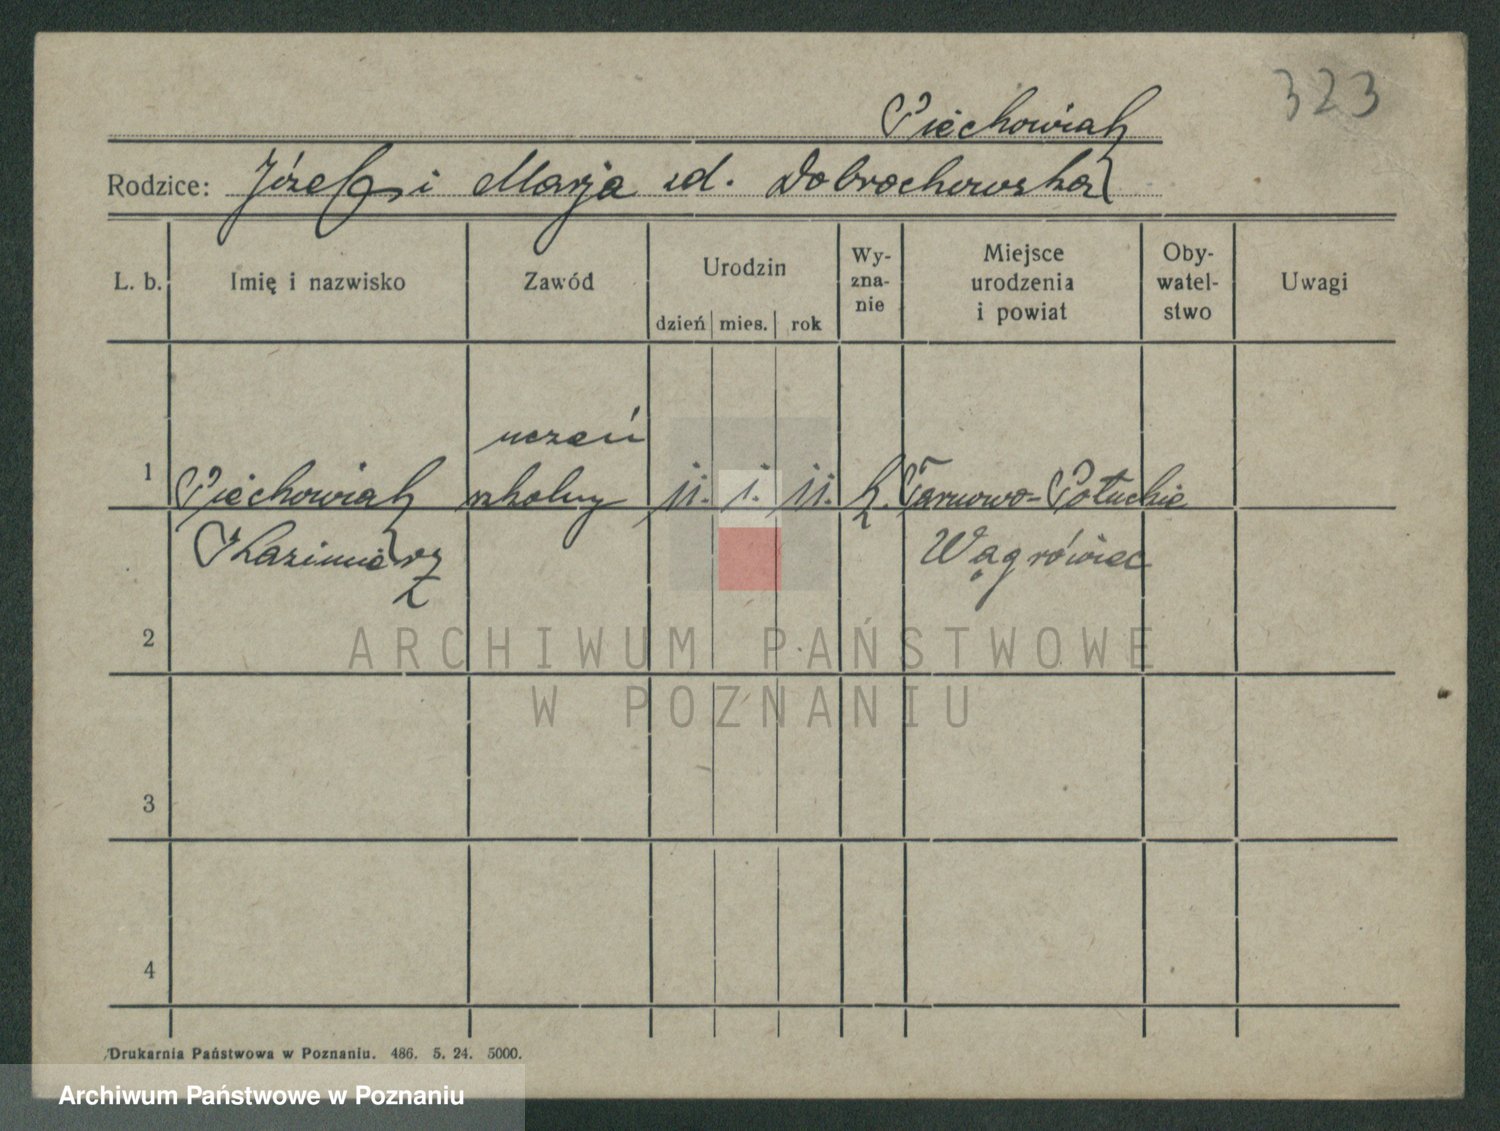 323
Piechowiak
Rodzice: Józef i Marja zd. Dobrochowska
L. b. Imię i nazwisko Zawód Urodzin dzień mies. rok Wy-zna-nie Miejsce urodzenia i powiat Oby-watel-stwo Uwagi
uczeń
1 Piechowiak szkolny 11. 1. 11. k. Tarnowo-Pałuckie
Kazimierz Wągrówiec
2
ARCHIWUM PAŃSTWOWE
W POZNANIU
3
4
Drukarnia Państwowa w Poznaniu. 486. 5. 24. 5000.
Archiwum Państwowe w Poznaniu